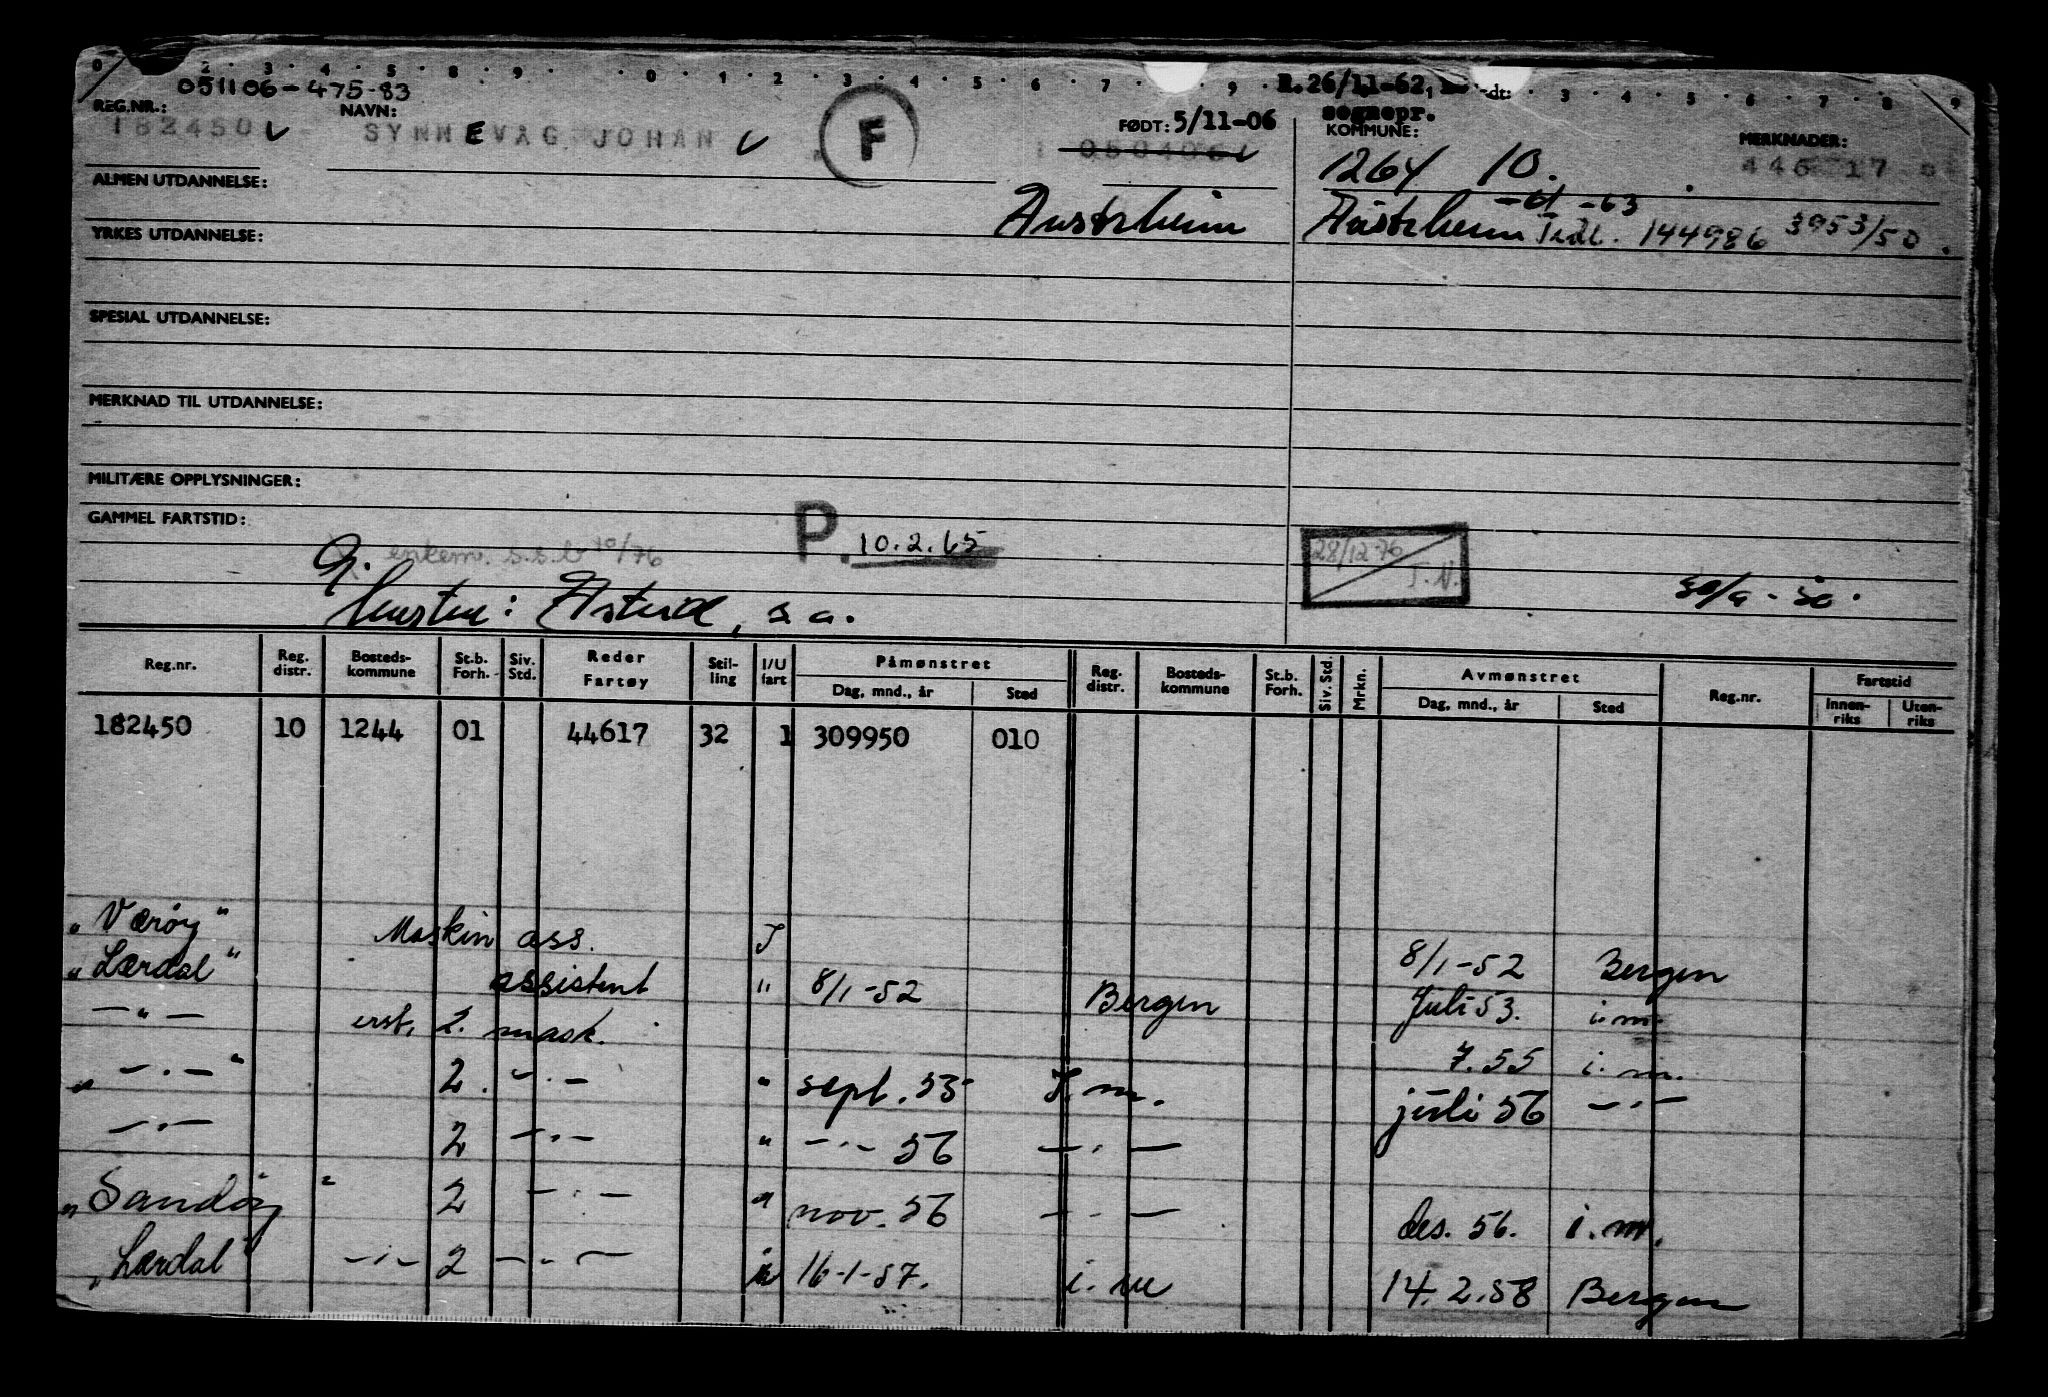 0 2 3 4 5 8 9 0 1 2 3 4 5 6 7 9 3 4 5 6 7 8 9
051106-475-83
R.26/11-62, dt:
REG.NR.: NAVN: FØDT: 5/11-06 sognepr.
KOMMUNE: MERKNADER:
182450 SYNNEVÅG JOHAN F 1264 10. 446 17
ALMEN UTDANNELSE:
-61 -63
Austrheim Austrheim Tidl. 144986 3953/50.
YRKES UTDANNELSE:
SPESIAL UTDANNELSE:
MERKNAD TIL UTDANNELSE:
MILITÆRE OPPLYSNINGER:
GAMMEL FARTSTID:
P. 10.2.65
enkem. s.s.b 10/76 28/12-76 T.N.
G.
Hustru: Astrid, s a. 30/9-50.
Reg.nr. Reg. distr. Bosteds-kommune St.b. Forh. Siv. Std. Reder Fartøy Stil-ling I/U fart Påmønstret Reg. distr. Bosteds-kommune St.b. Forh. Siv. Std. Mrkn. Avmønstret Reg.nr. Fartstid
Dag, mnd., år Sted Dag, mnd., år Sted Innen-riks Uten-riks
182450 10 1244 01 44617 32 1 309950 010
"Værøy" Maskin ass. I 8/1-52 Bergen
"Lærdal" assistent " 8/1-52 Bergen Juli 53. i.m.
—"— erst. 2. mask. 7.55 i.m.
" —.—" 2. —.— " sept. 55 I.m. juli 56 —.—
—.— 2 —.— " —.— 56 —.—
"Sandøy" 2 —.— " nov. 56 —.— des. 56. i.m.
"Lærdal" —.— 2 —.— i 16-1-57. i.m 14.2.58 Bergen